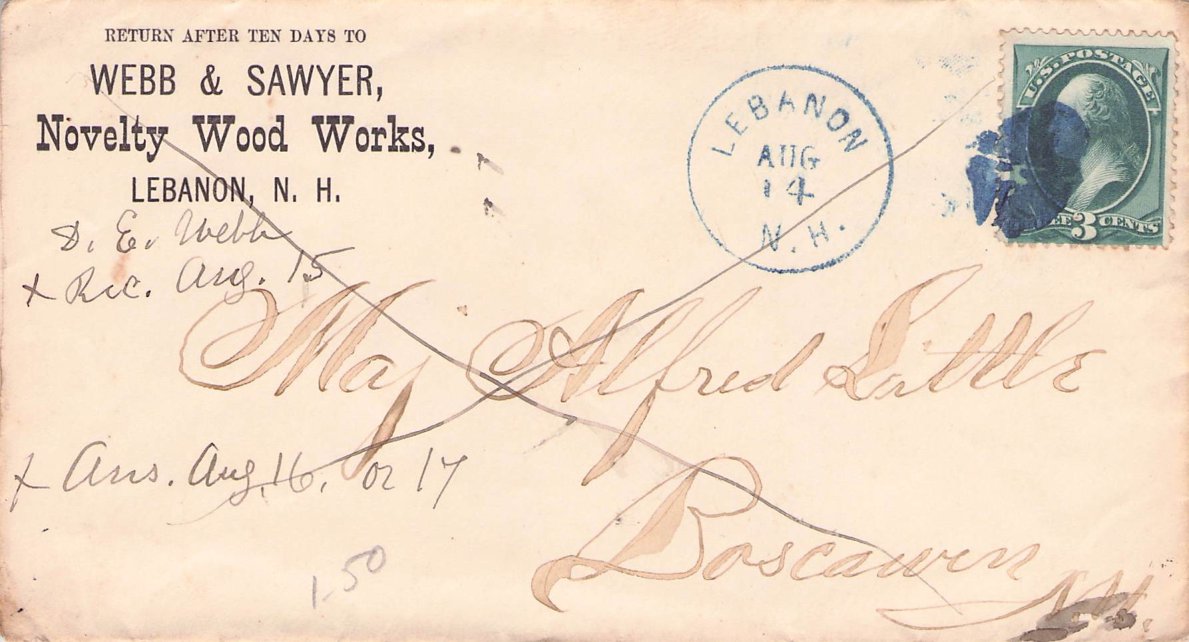 RETURN AFTER TEN DAYS TO
WEBB & SAWYER,
Novelty Wood Works,
LEBANON, N. H.
D. E. Webb
x Rec. Aug. 15
LEBANON
AUG
14
N. H.
U.S. POSTAGE
3 CENTS
Maj Alfred Little
x Ans. Aug. 16, or 17
Boscawen
N.H.
1.50